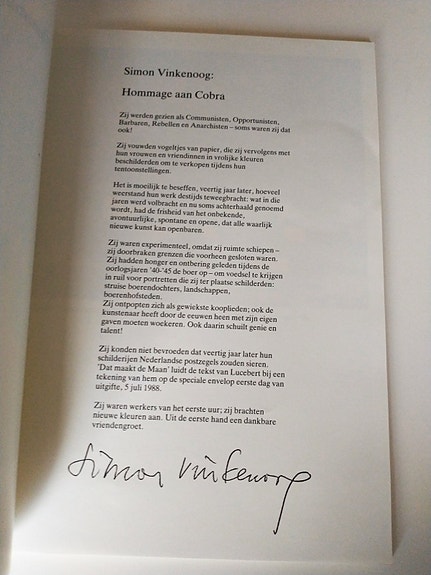 Simon Vinkenoog:
Hommage aan Cobra
Zij werden gezien als Communisten, Opportunisten,
Barbaren, Rebellen en Anarchisten – soms waren zij dat
ook!
Zij vouwden vogeltjes van papier, die zij vervolgens met
hun vrouwen en vriendinnen in vrolijke kleuren
beschilderden om te verkopen tijdens hun
tentoonstellingen.
Het is moeilijk te beseffen, veertig jaar later, hoeveel
weerstand hun werk destijds teweegbracht: wat in die
jaren werd volbracht en nu soms achterhaald genoemd
wordt, had de frisheid van het onbekende,
avontuurlijke, spontane en opene, dat alle waarlijk
nieuwe kunst kan openbaren.
Zij waren experimenteel, omdat zij ruimte schiepen –
zij doorbraken grenzen die voorheen gesloten waren.
Zij hadden honger en ontbering geleden tijdens de
oorlogsjaren '40-'45 de boer op – om voedsel te krijgen
in ruil voor portretten die zij ter plaatse schilderden:
struise boerendochters, landschappen,
boerenhofsteden.
Zij ontpopten zich als gewiekste kooplieden; ook de
kunstenaar heeft door de eeuwen heen met zijn eigen
gaven moeten woekeren. Ook daarin schuilt genie en
talent!
Zij konden niet bevroeden dat veertig jaar later hun
schilderijen Nederlandse postzegels zouden sieren.
'Dat maakt de Maan' luidt de tekst van Lucebert bij een
tekening van hem op de speciale envelop eerste dag van
uitgifte, 5 juli 1988.
Zij waren werkers van het eerste uur; zij brachten
nieuwe kleuren aan. Uit de eerste hand een dankbare
vriendengroet.
Simon Vinkenoog